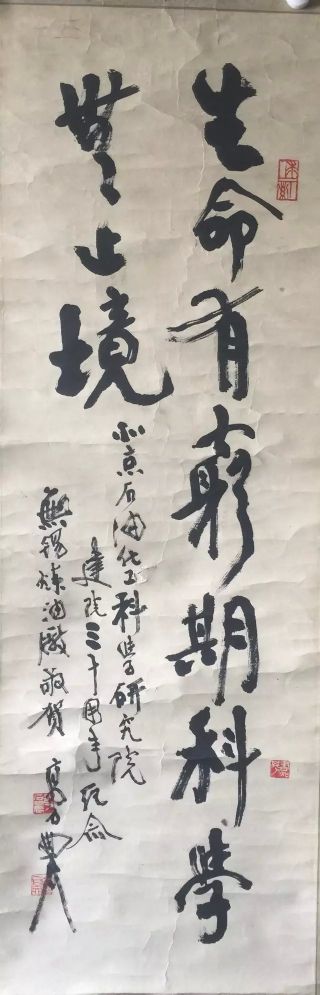 生命有窮期科学
無止境
北京石油化工科学研究院
建院三十周年纪念
無锡炼油厰敬贺